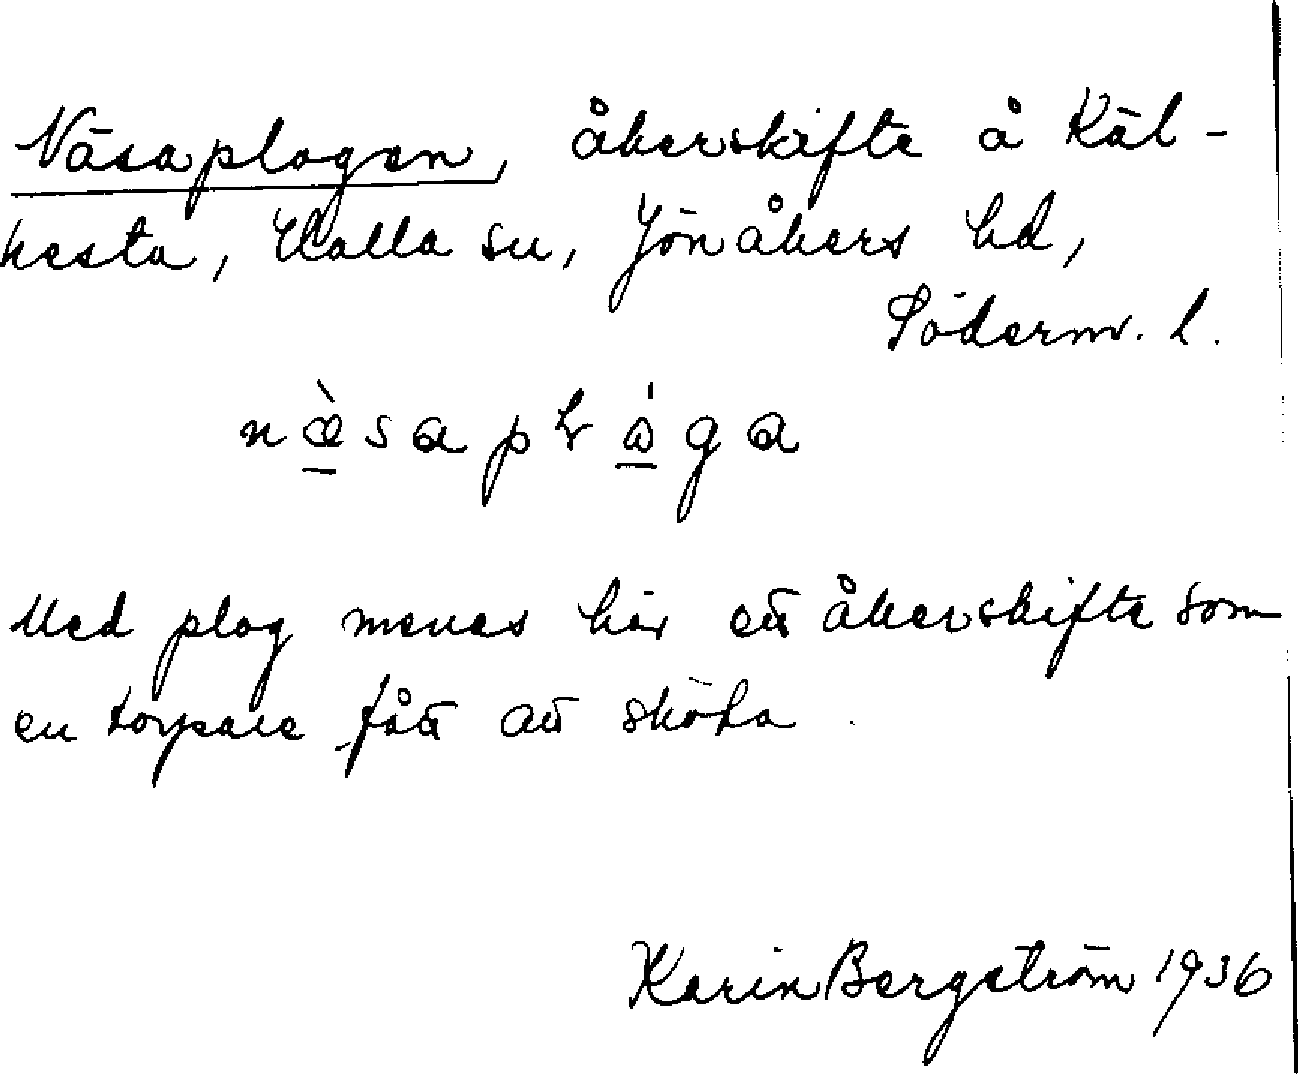 Näsaplogen, åkerskifte å Käl-
kesta, Halla sn, Jönåkers hd,
Söderm. l.
næ̀sapɫǻga
Med plog menes här ett åkerskifte som
en torpare fått att sköta.
Karin Bergström 1936